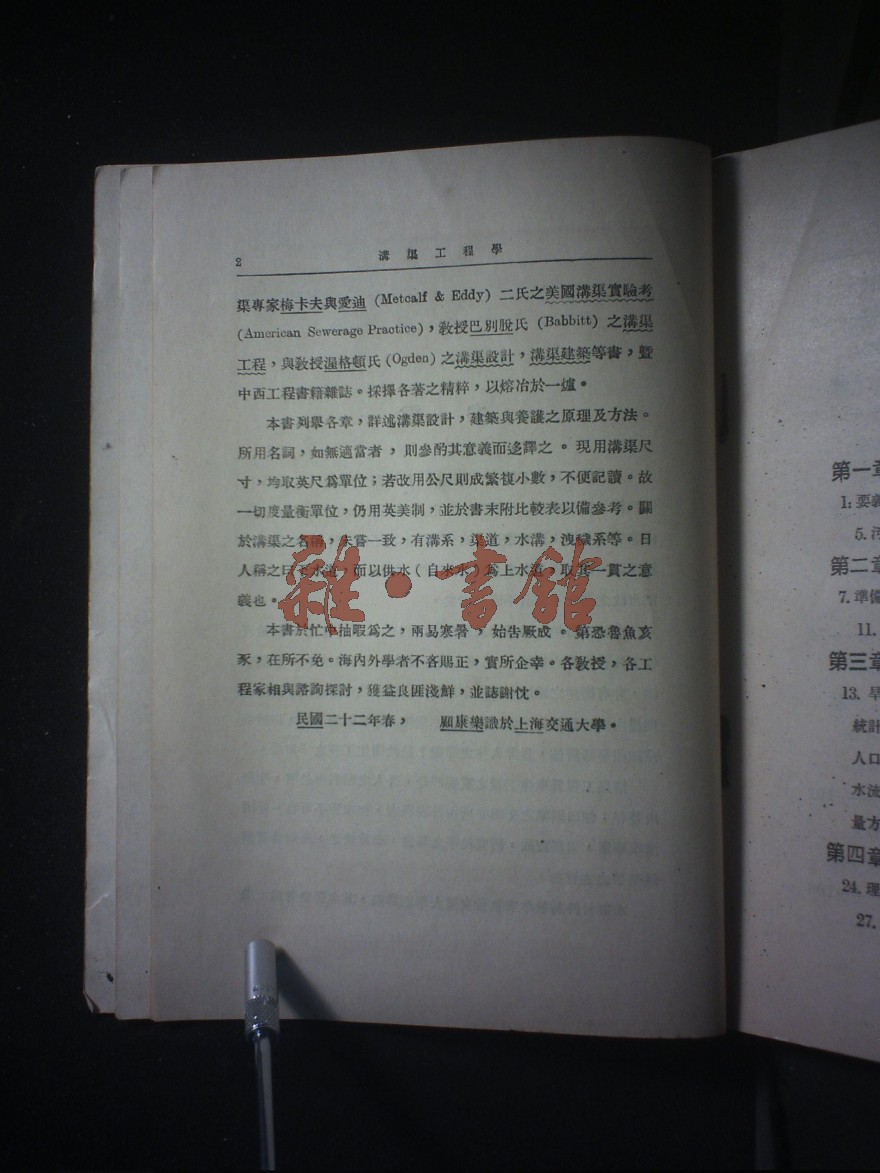 2
溝渠工程學
渠專家梅卡夫與愛迪 (Metcalf & Eddy) 二氏之美國溝渠實驗考
(American Sewerage Practice)，教授巴別脫氏 (Babbitt) 之溝渠
工程，與教授渥格頓氏 (Ogden) 之溝渠設計，溝渠建築等書，暨
中西工程書籍雜誌。採擇各著之精粹，以熔冶於一爐。
本書列舉各章，詳述溝渠設計，建築與養護之原理及方法。
所用名詞，如無適當者，則參酌其意義而迻譯之。現用溝渠尺
寸，均取英尺爲單位；若改用公尺則成繁複小數，不便記讀。故
一切度量衡單位，仍用英美制，並於書末附比較表以備參考。關
於溝渠之名稱，未嘗一致，有溝系，渠道，水溝，洩穢系等。日
人稱之曰下水道，而以供水（自來水）爲上水道，取其一貫之意
義也。
本書於忙中抽暇爲之，兩易寒暑，始告厥成。第恐魯魚亥
豕，在所不免。海內外學者不吝賜正，實所企幸。各教授，各工
程家相與諮詢探討，獲益良匪淺鮮，並誌謝忱。
民國二十二年春，顧康樂識於上海交通大學。
雜·書館
第一章
1. 要義
5. 污
第二章
7. 準備
11.
第三章
13. 旱
統計
人口
水流
量方
第四章
24. 理
27.